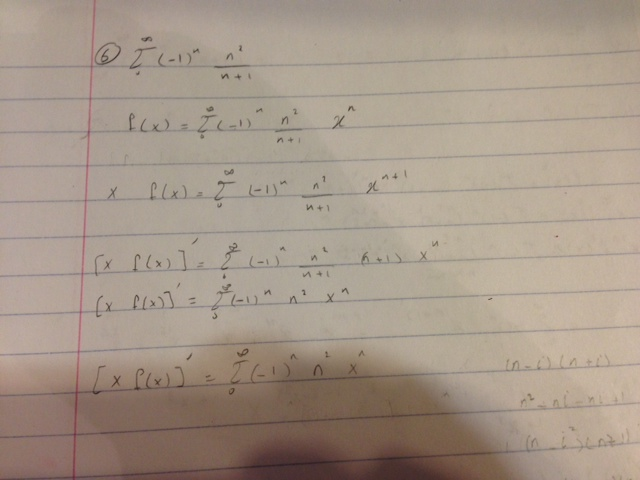 ⑥ ∞ Σ 0 (-1)^n n²/(n+1)
f(x) = ∞ Σ 0 (-1)^n n²/(n+1) x^n
x f(x) = ∞ Σ 0 (-1)^n n²/(n+1) x^(n+1)
[x f(x)]' = ∞ Σ 0 (-1)^n n²/(n+1) (n+1) x^n
[x f(x)]' = ∞ Σ 0 (-1)^n n² x^n
[x f(x)]' = ∞ Σ 0 (-1)^n n² x^n
(n-i)(n+i)